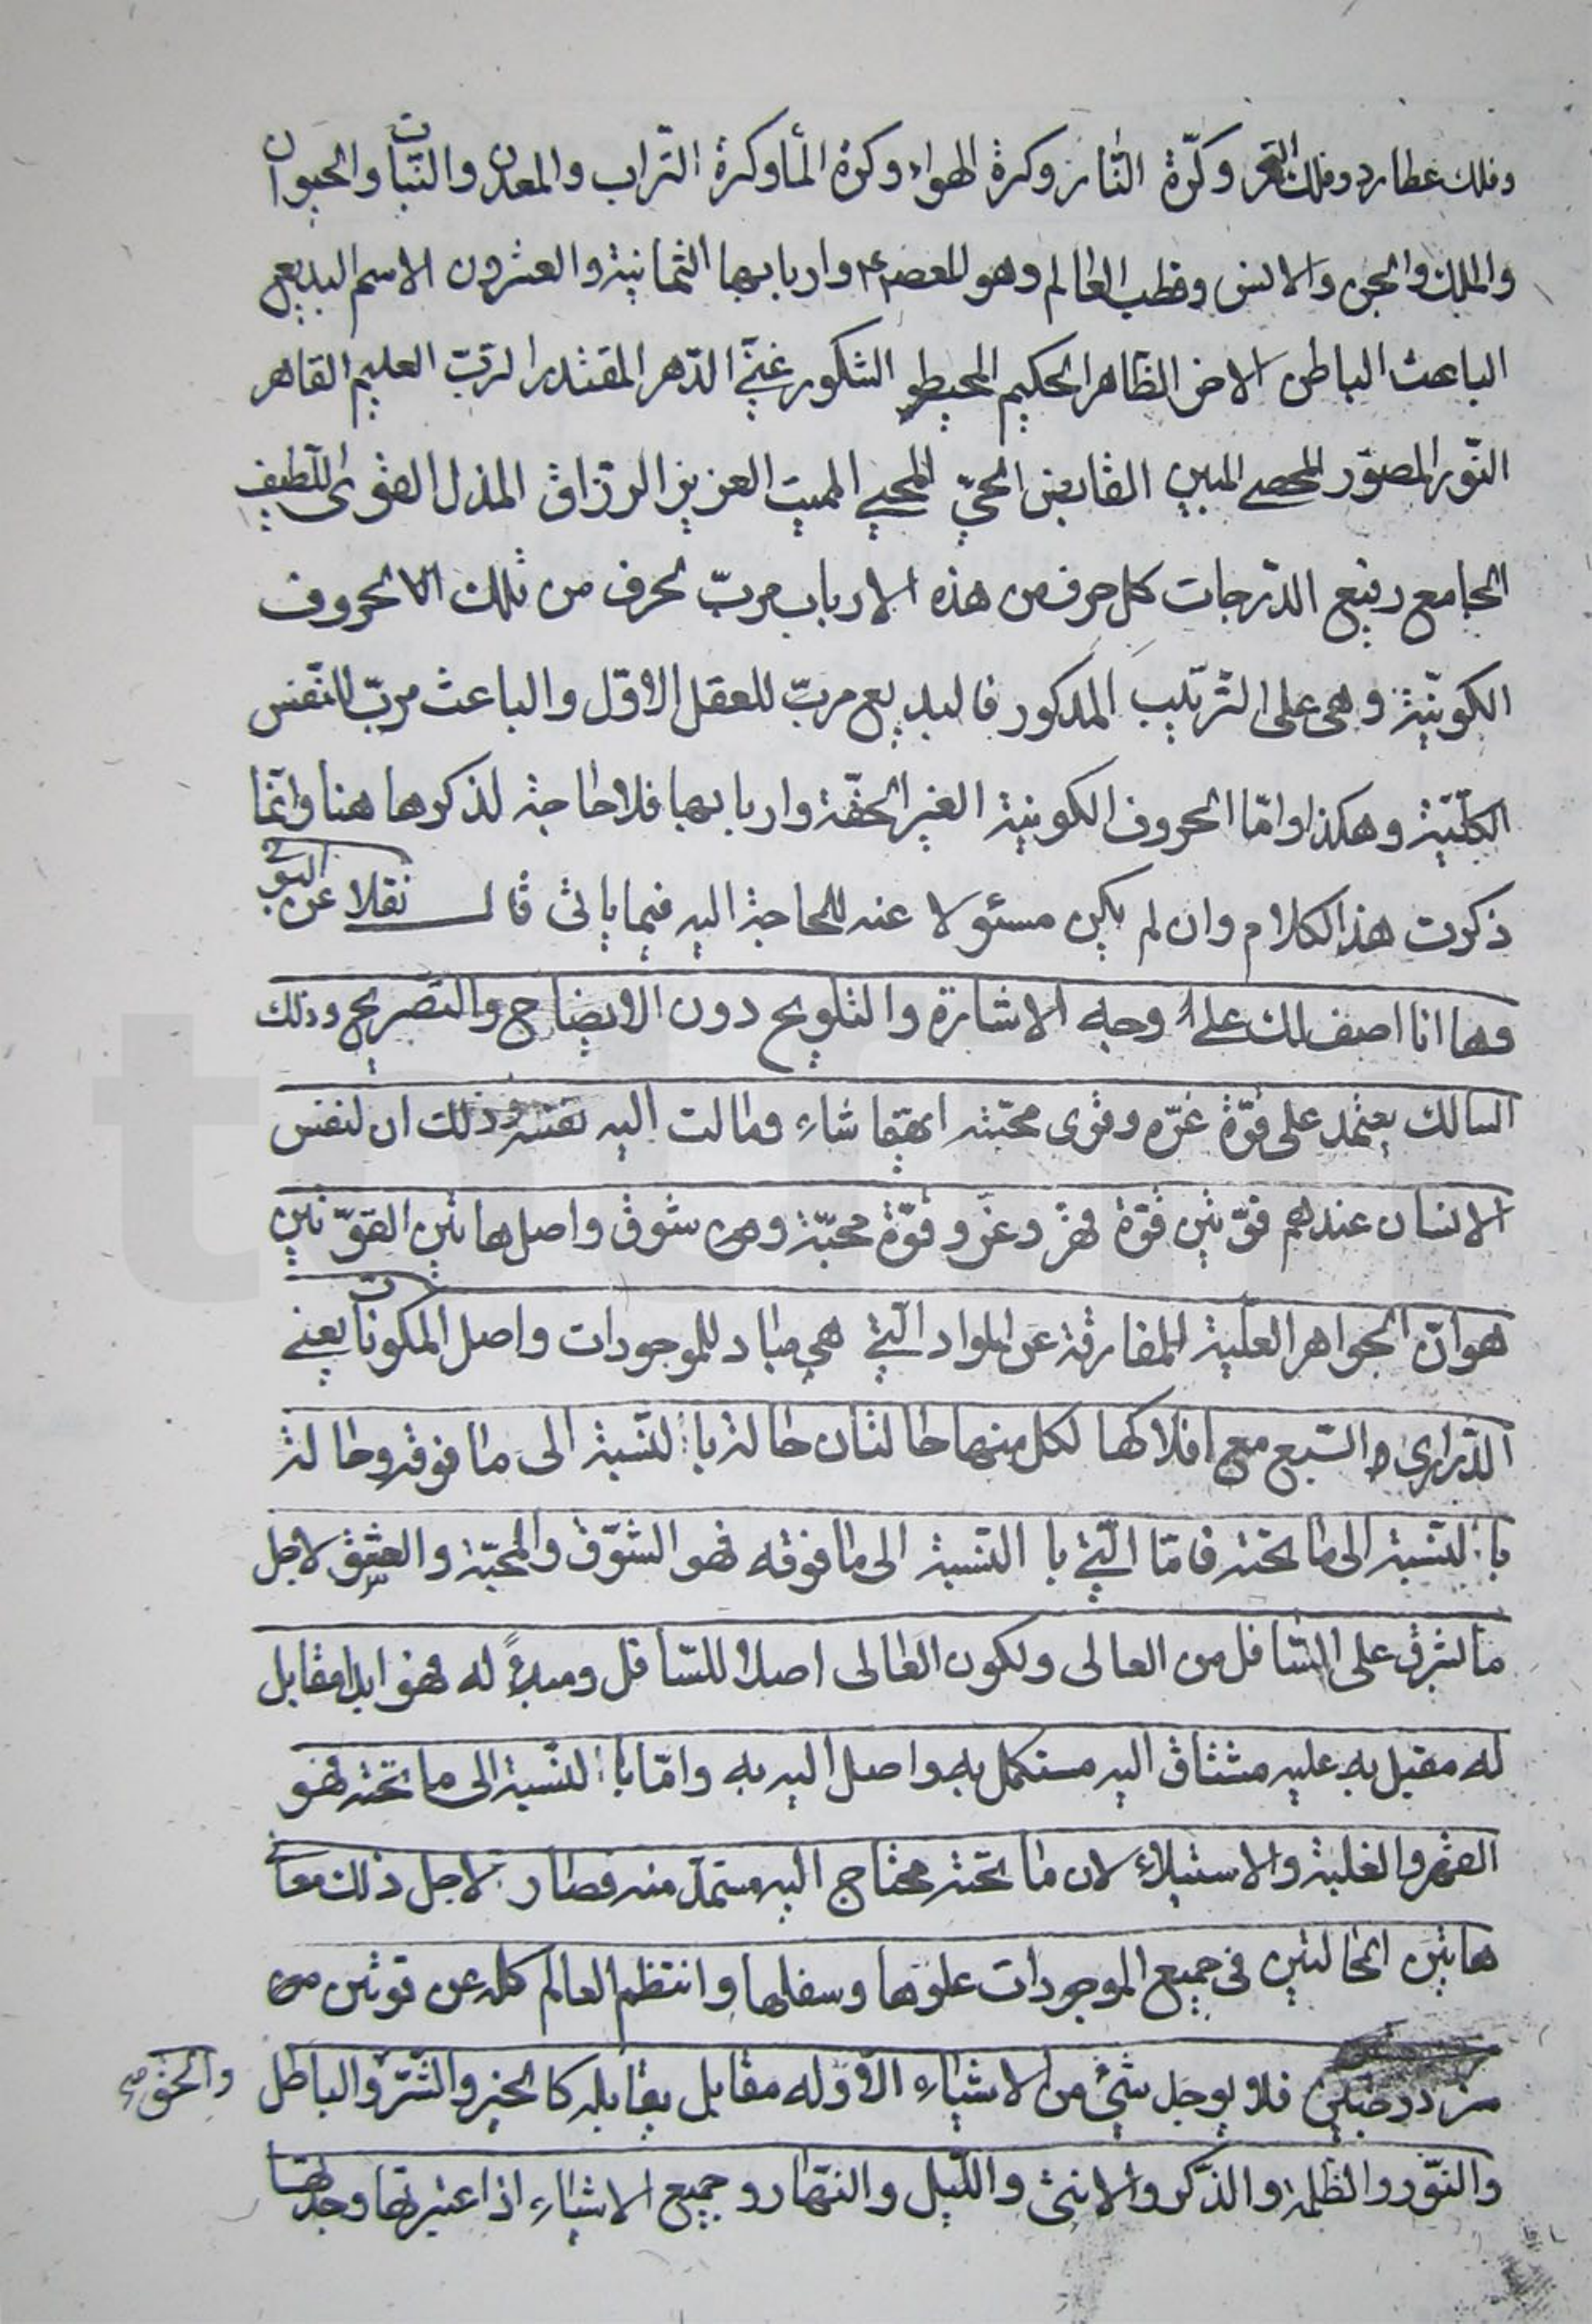 وفلك عطارد وفلك القمر وكرّة النّار وكرة الهواء وكرة المأ وكرة التّراب والمعدن والنّبات والحيوان
والملك والجن والانس وقطب العالم وهو للعصر ع واربابها الثمانية والعشرون الاسم البديع
الباعث الباطن الاخر الظّاهر الحكيم المحيط الشكور غنيّ الدّهر المقتدر الرّبّ العليم القاهر
النّور المصوّر المحصى المبين القابض الحيّ المحيي المميت العزيز الرزّاق المذل القوى اللّطيف
الجامع رفيع الدّرجات كل حرف من هذه الارباب مربّ لحرف من تلك الحروف
الكونيّة وهى على التّرتيب المذكور فالبديع مربّ للعقل الاوّل والباعث مربّ للنّفس
الكلّيّة وهكذا وامّا الحروف الكونية الغير الحقّة واربابها فلا حاجة لذكرها هنا وانّما
ذكرت هذا الكلام وان لم يكن مسئولا عنه للحاجة اليه فيما يأتى قال نقلا عن البونى
وها انا اصف لك على وجه الاشارة والتلويح دون الايضاح والتصريح وذلك
السالك يعتمد على قوّة عزّه وقوى محبّته ايهما شاء ومالت اليه نفسه وذلك ان لنفس
الانسان عندهم قوّتين قوّة قهر وعزّ وقوّة محبّة وهى شوق واصل هاتين القوّتين
هو انّ الجواهر العلية المفارقة عن المواد الّتي هي مباد للموجودات واصل المكونات يعنى
الدّرارى السّبع مع افلاكها لكل منها حالتان حالة بالنّسبة الى ما فوقه وحالة
بالنّسبة الى ما تحته فامّا الّتي با النسبة الى ما فوقه فهو الشّوق والمحبّة والعشق لاجل
ما اشرق على السّافل من العالى ولكون العالى اصلا للسّافل ومبدءً له فهو ابدا مقابل
له مقبل به عليه مشتاق اليه مستكمل به واصل اليه به وامّا بالنّسبة الى ما تحته فهو
القهر والغلبة والاستيلاء لان ما تحته محتاج اليه مستمدّ منه فصار لاجل ذلك معانى
هاتين الحالتين فى جميع الموجودات علوها وسفلها وانتظم العالم كله عن قوتين من
مزدوجين فلا يوجد شئ من الاشياء الاّ وله مقابل يقابله كا الخير والشّرّ والباطل والحق صح
والنّور والظلمة والذّكر والانثى واللّيل والنّهار وجميع الاشياء اذا اعتبرتها وجدتها